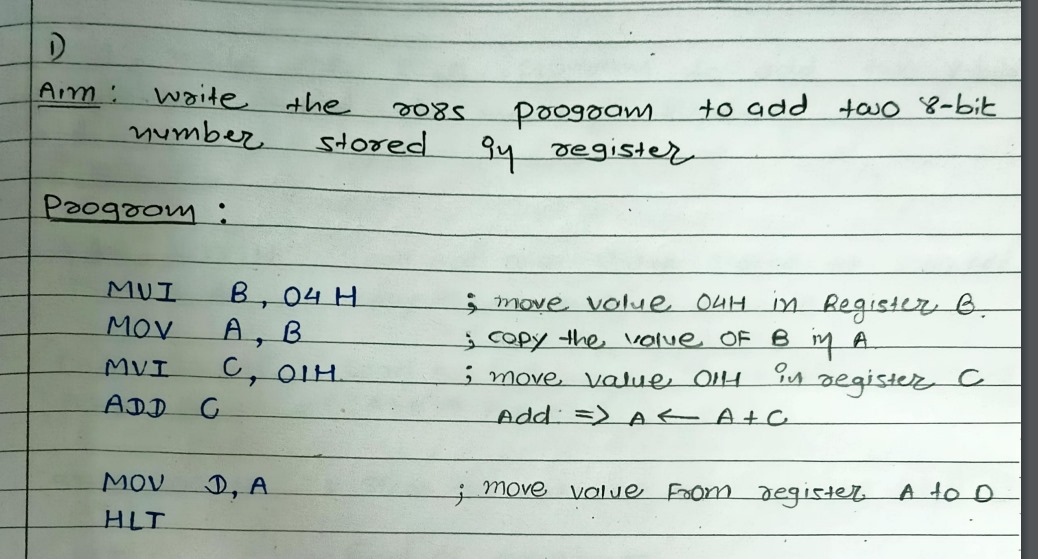 1)
Aim : write the 8085 program to add two 8-bit
number stored in register
Program :
MVI B, 04 H ; move value 04H in Register B.
MOV A, B ; copy the value OF B in A
MVI C, 01H. ; move value 01H in register C
ADD C Add => A ← A + C
MOV D, A ; move value From register A to D
HLT